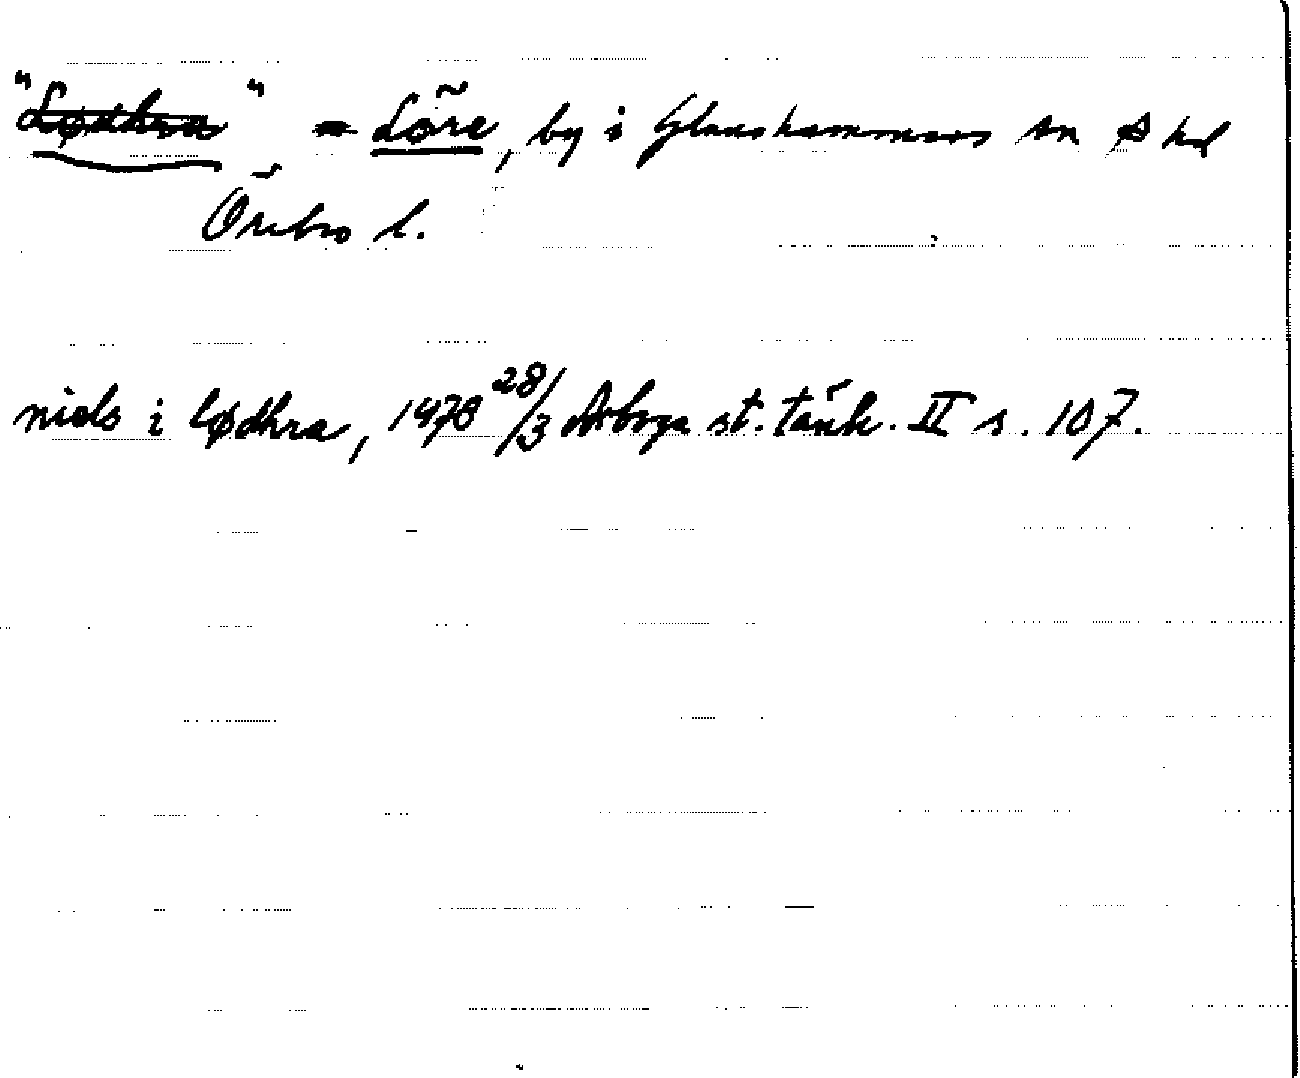 "Lødhra" = Löre, by i Glanshammars sn o hd
Örebro l.
niels i lødhra, 1478 28/3 Arboga st. tänk. II s. 107.